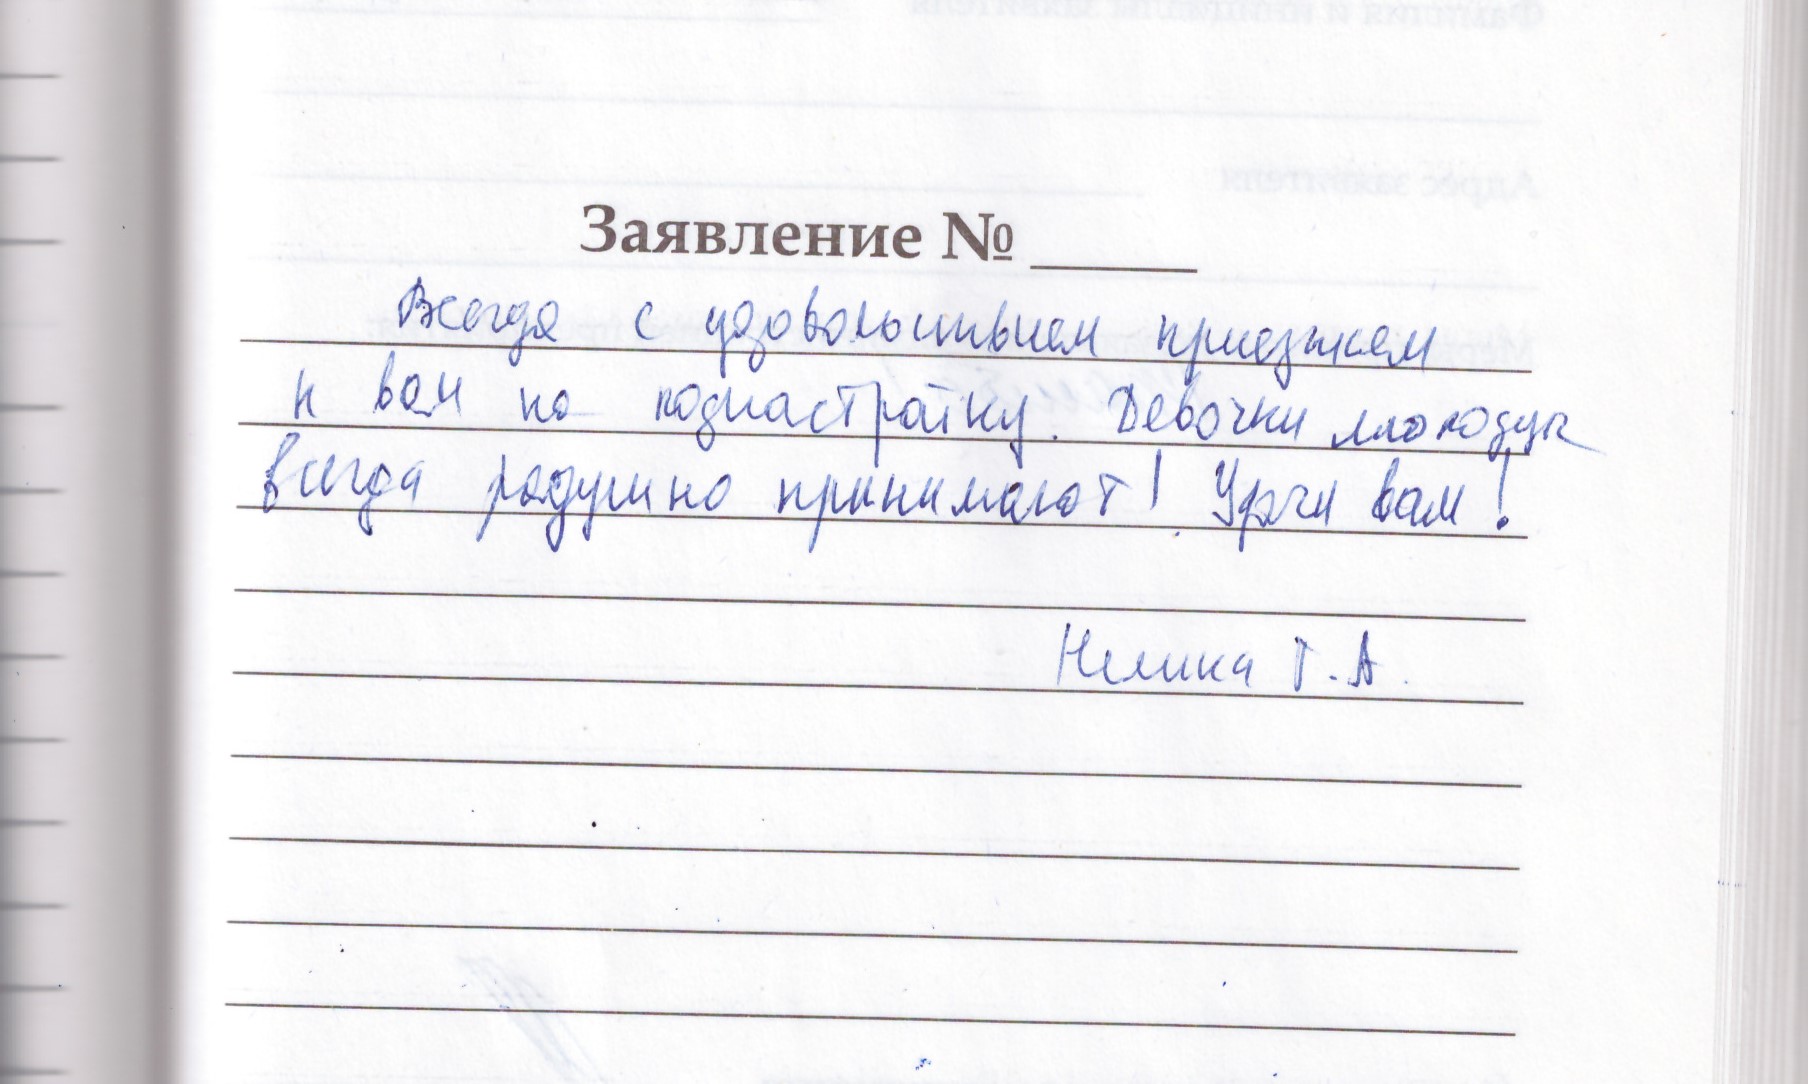 Заявление № _____
Всегда с удовольствием приезжаем
к вам на поднастройку. Девочки молодцы
всегда радушно принимают! Удачи вам!
Т.А.